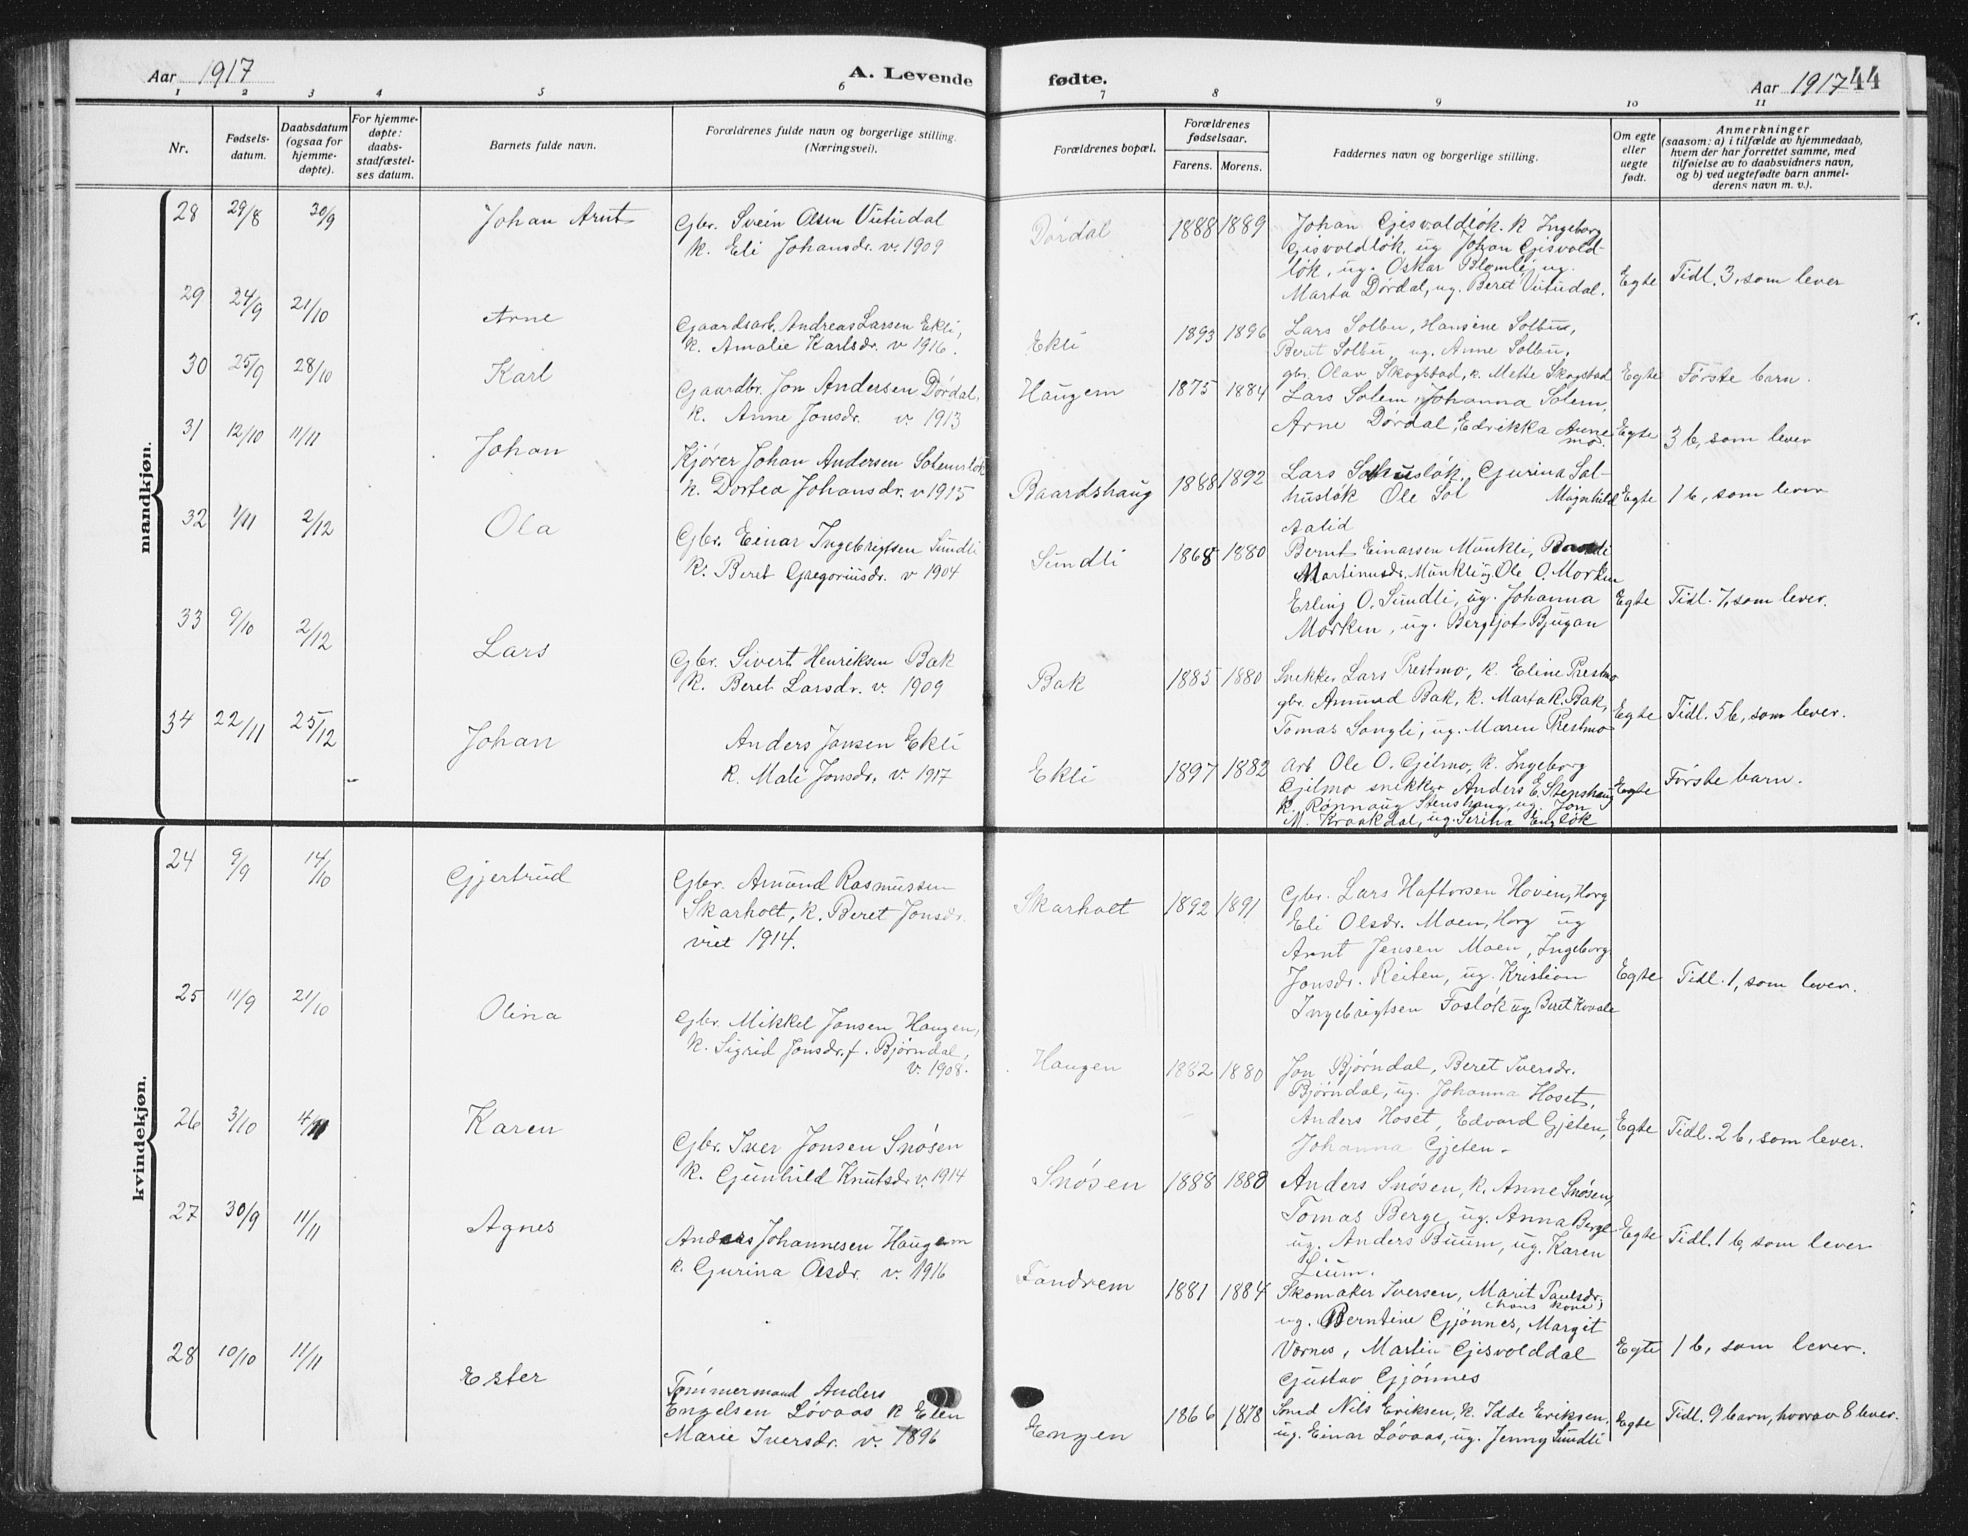 Aar 1917
A. Levende
fødte.
Aar 1917 44
1 2 3 4 5 6 7 8 9 10 11
Nr.
Fødsels-
datum.
Daabsdatum
(ogsaa for
hjemme-
døpte).
For hjemme-
døpte:
daabs-
stadfæstel-
ses datum.
Barnets fulde navn.
Forældrenes fulde navn og borgerlige stilling.
(Næringsvei).
Forældrenes bopæl.
Forældrenes
fødselsaar.
Farens. Morens.
Faddernes navn og borgerlige stilling.
Om egte
eller
uegte
født.
Anmerkninger
(saasom: a) i tilfælde av hjemmedaab,
hvem der har forrettet samme, med
tilføielse av to daabsvidners navn,
og b) ved uegtefødte barn anmel-
derens navn m. v.).
mandkjøn.
28 29/8 30/9 Johan Arnt
Gbr. Svein Olsen Vutudal
k. Eli Johansdr. v. 1909
Dørdal 1888 1889
Johan Gjisvoldløk. k Ingeborg
Gjisvoldløk, ug Johan Gjisvold-
løk, ug. Oskar Blomli, ug.
Marta Dørdal, ug. Beret Vutudal.
Egte Tidl. 3, som lever
29 24/9 21/10 Arne
Gaardsarb. Andreas Larsen Ekli,
k. Amalie Karlsdr. v 1916.
Ekli 1893 1896
Lars Solbu, Hansine Solbu,
Beret Solbu, ug. Anne Solbu.
gbr. Olav Skogstad, k. Mette Skogstad
Egte Første barn.
30 25/9 28/10 Karl
Gaardbr. Jon Andersen Dørdal,
k. Anne Jonsdr. v. 1913
Haugem 1875 1884
Lars Solem, Johanna Solem,
Arne Dørdal, Edrikka Aune
mo.
Egte 3 b, som lever
31 12/10 11/11 Johan
Kjører Johan Andersen Solemsløk
k. Dortea Johansdr. v 1915
Baardshaug 1888 1892
Lars Solhusløk, Gjurina Sol-
husløk Ole Sol Magnhild
Aalid
Egte 1 b, som lever
32 1/11 2/12 Ola
Gbr. Einar Ingebrigtsen Sundli
k. Beret Gregoriusdr. v 1904
Sundli 1868 1880
Bernt Einarsen Munkli,
Martinusdr. Munkli, Ole O. Morken
Erling O. Sundli, ug. Johanna
Morken, ug. Bergljot Bjugan
Egte Tidl. 7, som lever.
33 9/10 2/12 Lars
Gbr. Sivert Henriksen Bak
k. Beret Larsdr. v. 1909
Bak 1885 1880
Snekker Lars Prestmo, k. Eline Prestmo
gbr. Amund Bak, k. Marta R. Bak,
Tomas Songli, ug. Maren Prestmo
Egte Tidl. 5 b, som lever.
34 22/11 25/12 Johan
Anders Jonsen Ekli
k. Mali Jonsdr. v. 1917
Ekli 1897 1882
arb Ole O. Gjilmo, k. Ingeborg
Gjilmo snikker Anders E. Stenshaug
k. Rønnaug Stenshaug, ug. Jon
M. Kraakdal, ug. Serina Engløk
Egte Første barn.
kvindekjøn.
24 9/9 14/10 Gjertrud
Gbr. Amund Rasmussen
Skarholt, k. Beret Jonsdr.
viet 1914.
Skarholt 1892 1891
Gbr. Lars Haftorsen Hoven, Horg
Eli Olsdr. Moen, Horg ug
Arnt Jensen Moen, Ingeborg
Jonsdr. Reiten, ug. Kristian
Ingebrigtsen Fosløk ug Beret Kvaale
Egte Tidl. 1, som lever.
25 11/9 21/10 Olina
Gbr. Mikkel Jonsen Haugen,
k. Sigrid Jonsdr. f. Bjørndal,
v. 1908.
Haugen 1882 1880
Jon Bjørndal, Beret Iversdr.
Bjørndal, ug. Johanna Hoset,
Anders Hoset, Edvard Gjeten,
Johanna Gjeten.
Egte Tidl. 2 b, som lever.
26 3/10 4/11 Karen
Gbr. Iver Jonsen Snøsen
k. Gjunhild Knutsdr. v. 1914
Snøsen 1888 1888
Anders Snøsen, k. Anne Snøsen,
Tomas Berge, ug. Anna Berge
ug. Anders Buum, ug. Karen
Lium.
Egte Tidl. 1 b, som lever
27 30/9 11/11 Agnes
Anders Johannesen Haugem
k. Gjurina Olsdr. v. 1916
Fandrem 1881 1884
Skomaker Iversen, Marit Paulsdr.
(hans kone)
ug. Berntine Gjønnes, Margit
Værnes, Martin Gjisvolddal
Gustav Gjønnes
Egte 1 b, som lever.
28 10/10 11/11 Ester
Tømmermand Anders
Engelsen Løvaas k Elen
Marie Iversdr. v. 1896
Engen 1866 1878
Smed Nils Eriksen, k. Idde Eriksen,
ug. Einar Løvaas, ug. Jenny Sundli
Egte Tidl. 9 barn, hvorav 8 lever.